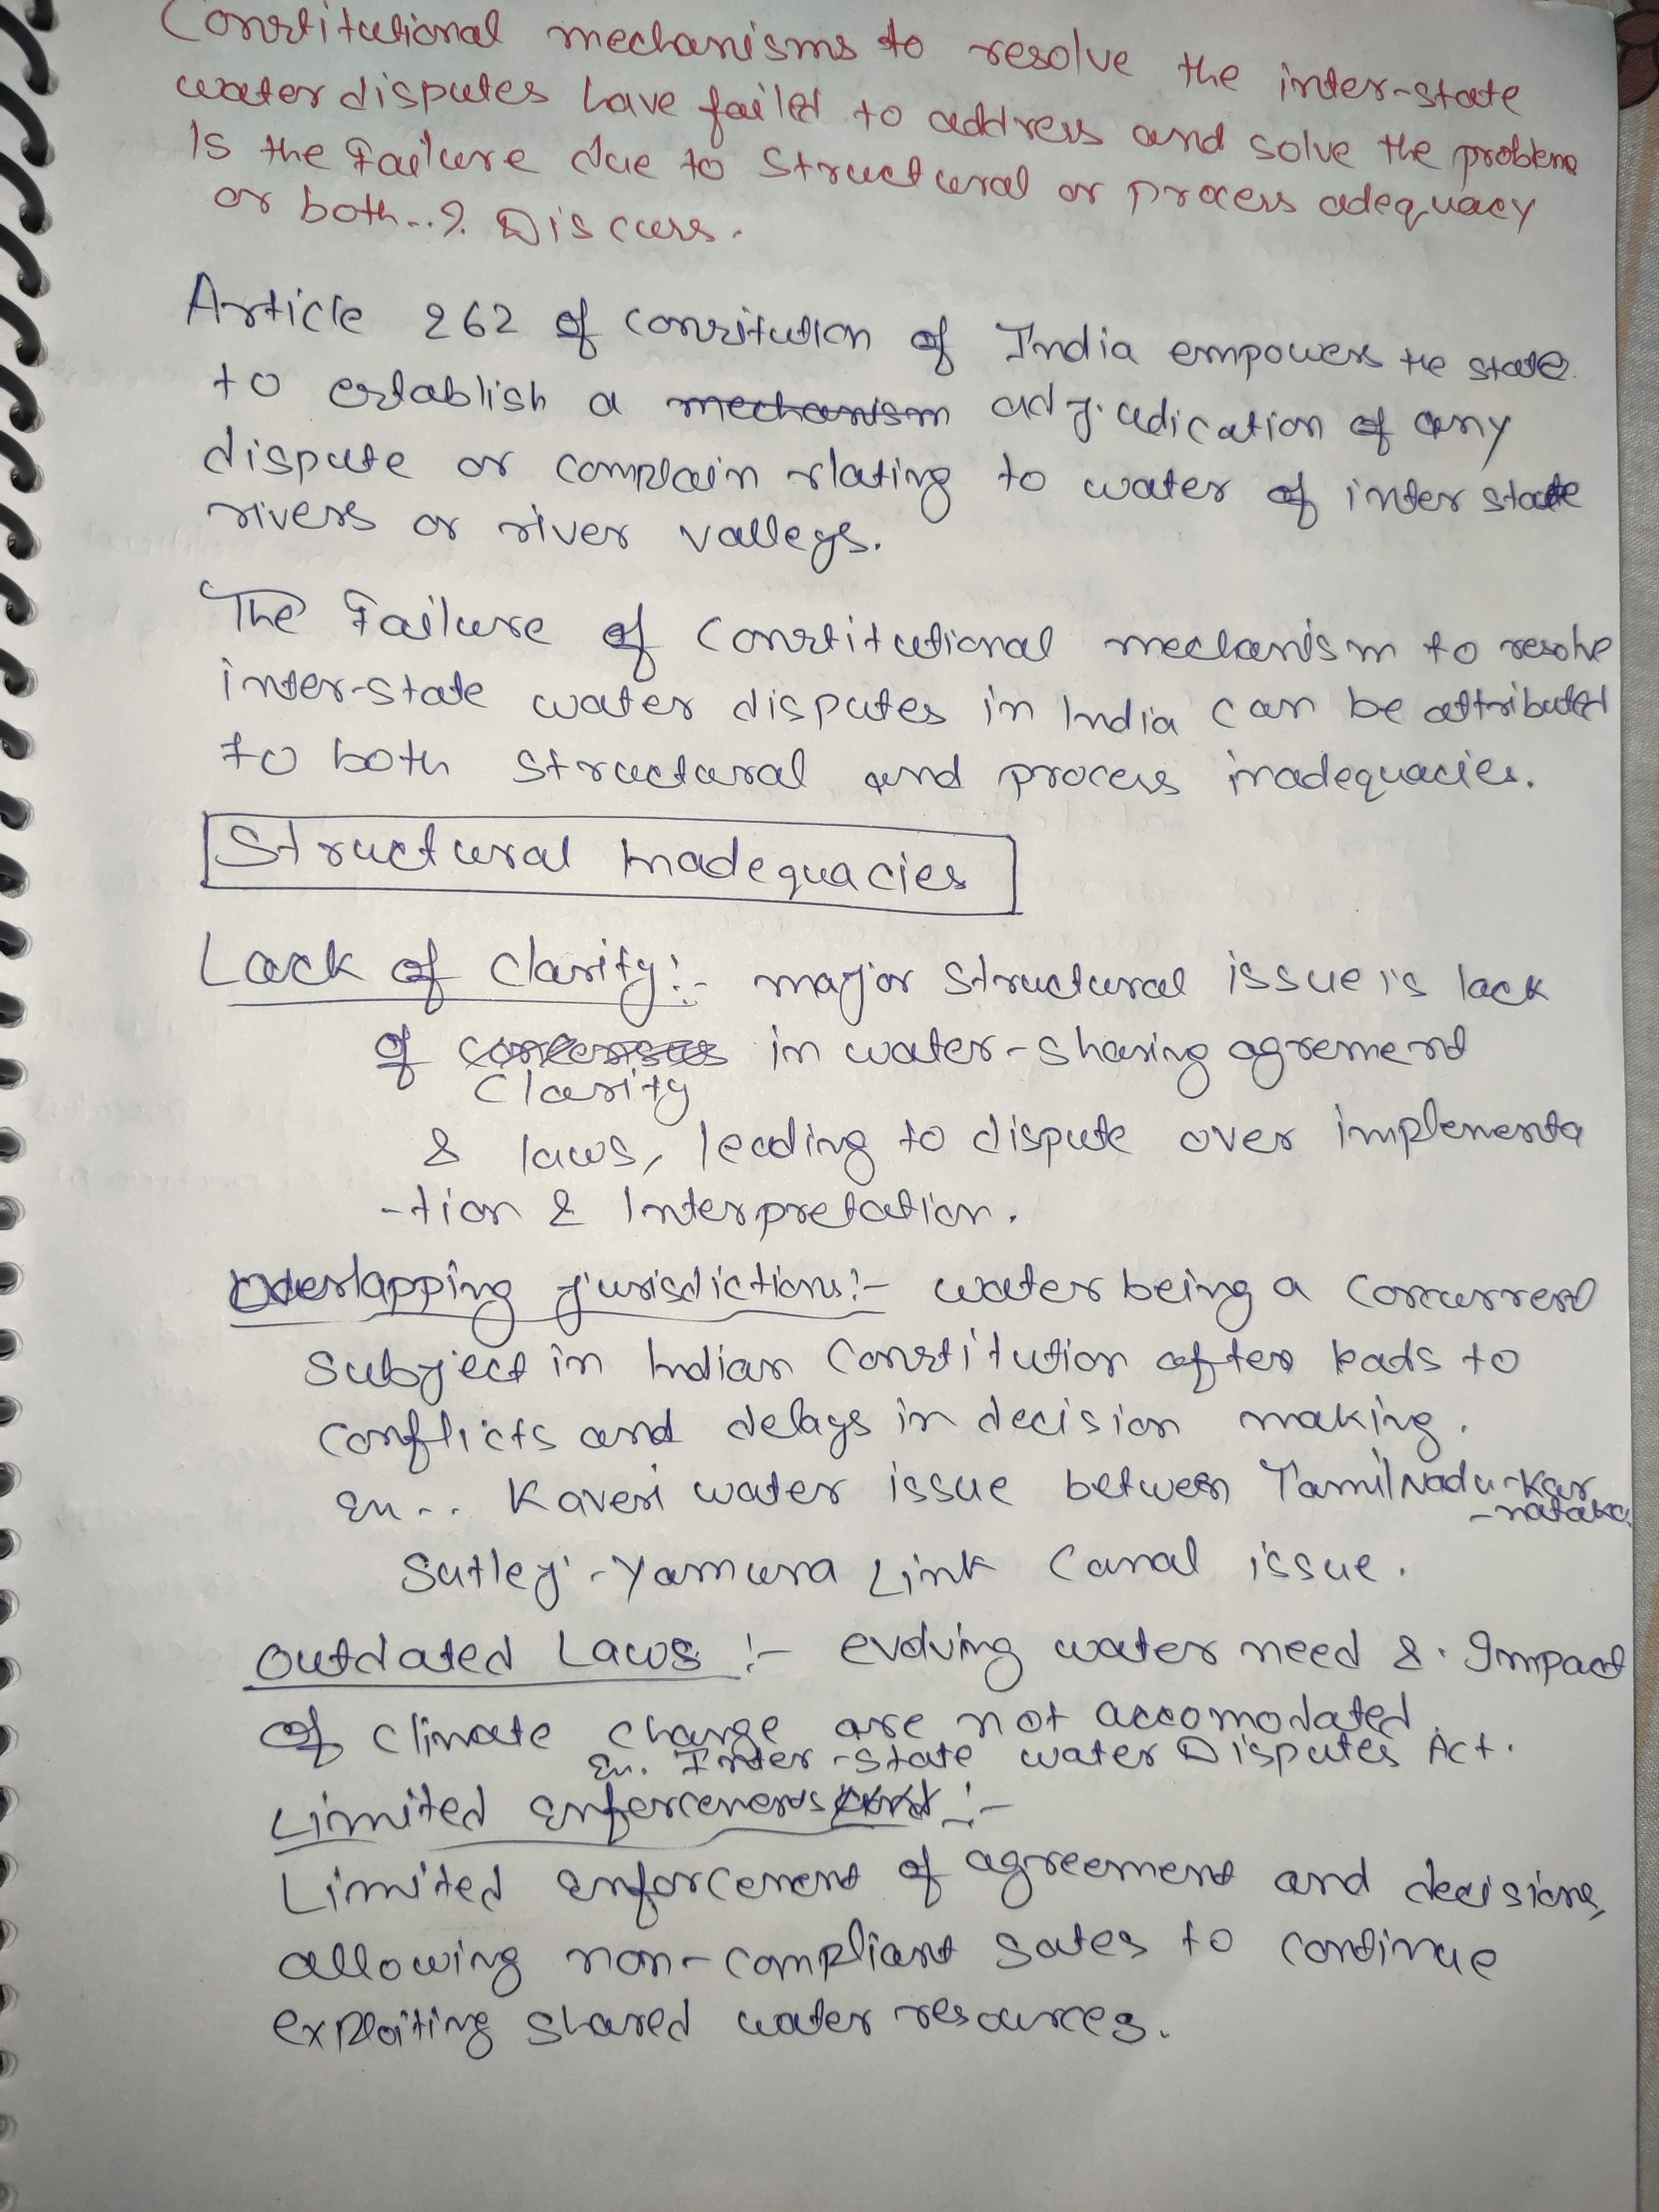 Constitutional mechanisms to resolve the inter-state
water disputes have failed to address and solve the problems
Is the Failure due to Structural or process adequacy
or both..? Discuss.
Article 262 of constitution of India empowers the state
to establish a mechanism adjudication of any
dispute or complain rlating to water of inter state
rivers or river valleys.
The Failure of Constitutional mechanism to resolve
inter-state water disputes in India can be attributed
to both structural and process inadequacies.
Structural Inadequacies
Lack of clarity:- major structural issue is lack
of consensus in water-sharing agrement
clarity
& laws, leading to dispute over implementa
-tion & Interpretation.
Overlapping jurisdictions:- water being a concurrent
subject in Indian Constitution often leads to
conflicts and delays in decision making.
Ex.. Kaveri water issue between Tamil Nadu-Kar
-nataka.
Sutlej-Yamuna Link Canal issue.
Outdated Laws :- evolving water need & Impact
of climate change are not accomodated.
Ex. Inter-state water Disputes Act.
Limited enforcements :-
Limited enforcement of agreement and decisions,
allowing non-compliant sates to continue
exploiting shared water resources.